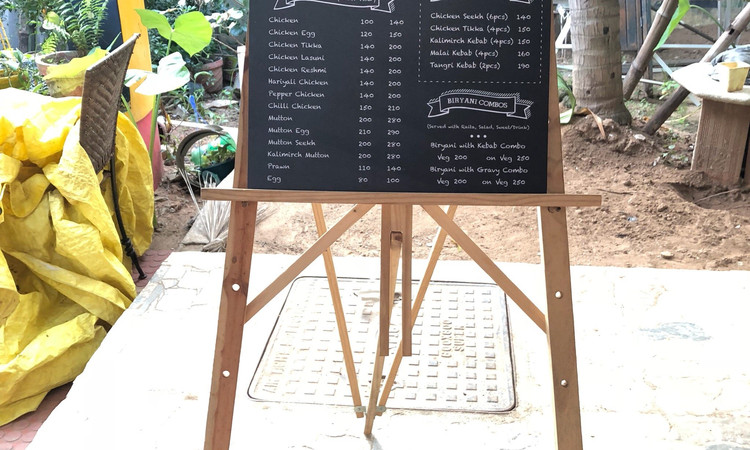 Chicken 100 140
Chicken Egg 120 150
Chicken Tikka 140 200
Chicken Lasuni 140 200
Chicken Reshmi 140 200
Hariyali Chicken 140 200
Pepper Chicken 140 200
Chilli Chicken 150 210
Mutton 200 280
Mutton Egg 210 290
Mutton Seekh 200 280
Kalimirch Mutton 200 280
Prawn 110 140
Egg 80 100
Chicken Seekh (6pcs) 140
Chicken Tikka (4pcs) 150
Kalimirch Kebab (4pcs) 150
Malai Kebab (4pcs) 160
Tangri Kebab (2pcs) 190
BIRYANI COMBOS
(Served with Raita, Salad, Sweet/Drink)
Biryani with Kebab Combo
Veg 200 on Veg 250
Biryani with Gravy Combo
Veg 200 on Veg 250